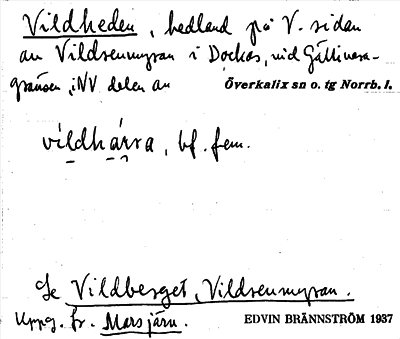 Vildheden, hedland på V. sidan
av Vildrenmyran i Dockas, vid Gällivara-
gränsen, i NV delen av Överkalix sn o. tg Norrb. l.
víldhárra, bf. fem.
Se Vildberget, Vildrenmyran.
Uppg. fr. Marsjärv. EDVIN BRÄNNSTRÖM 1937